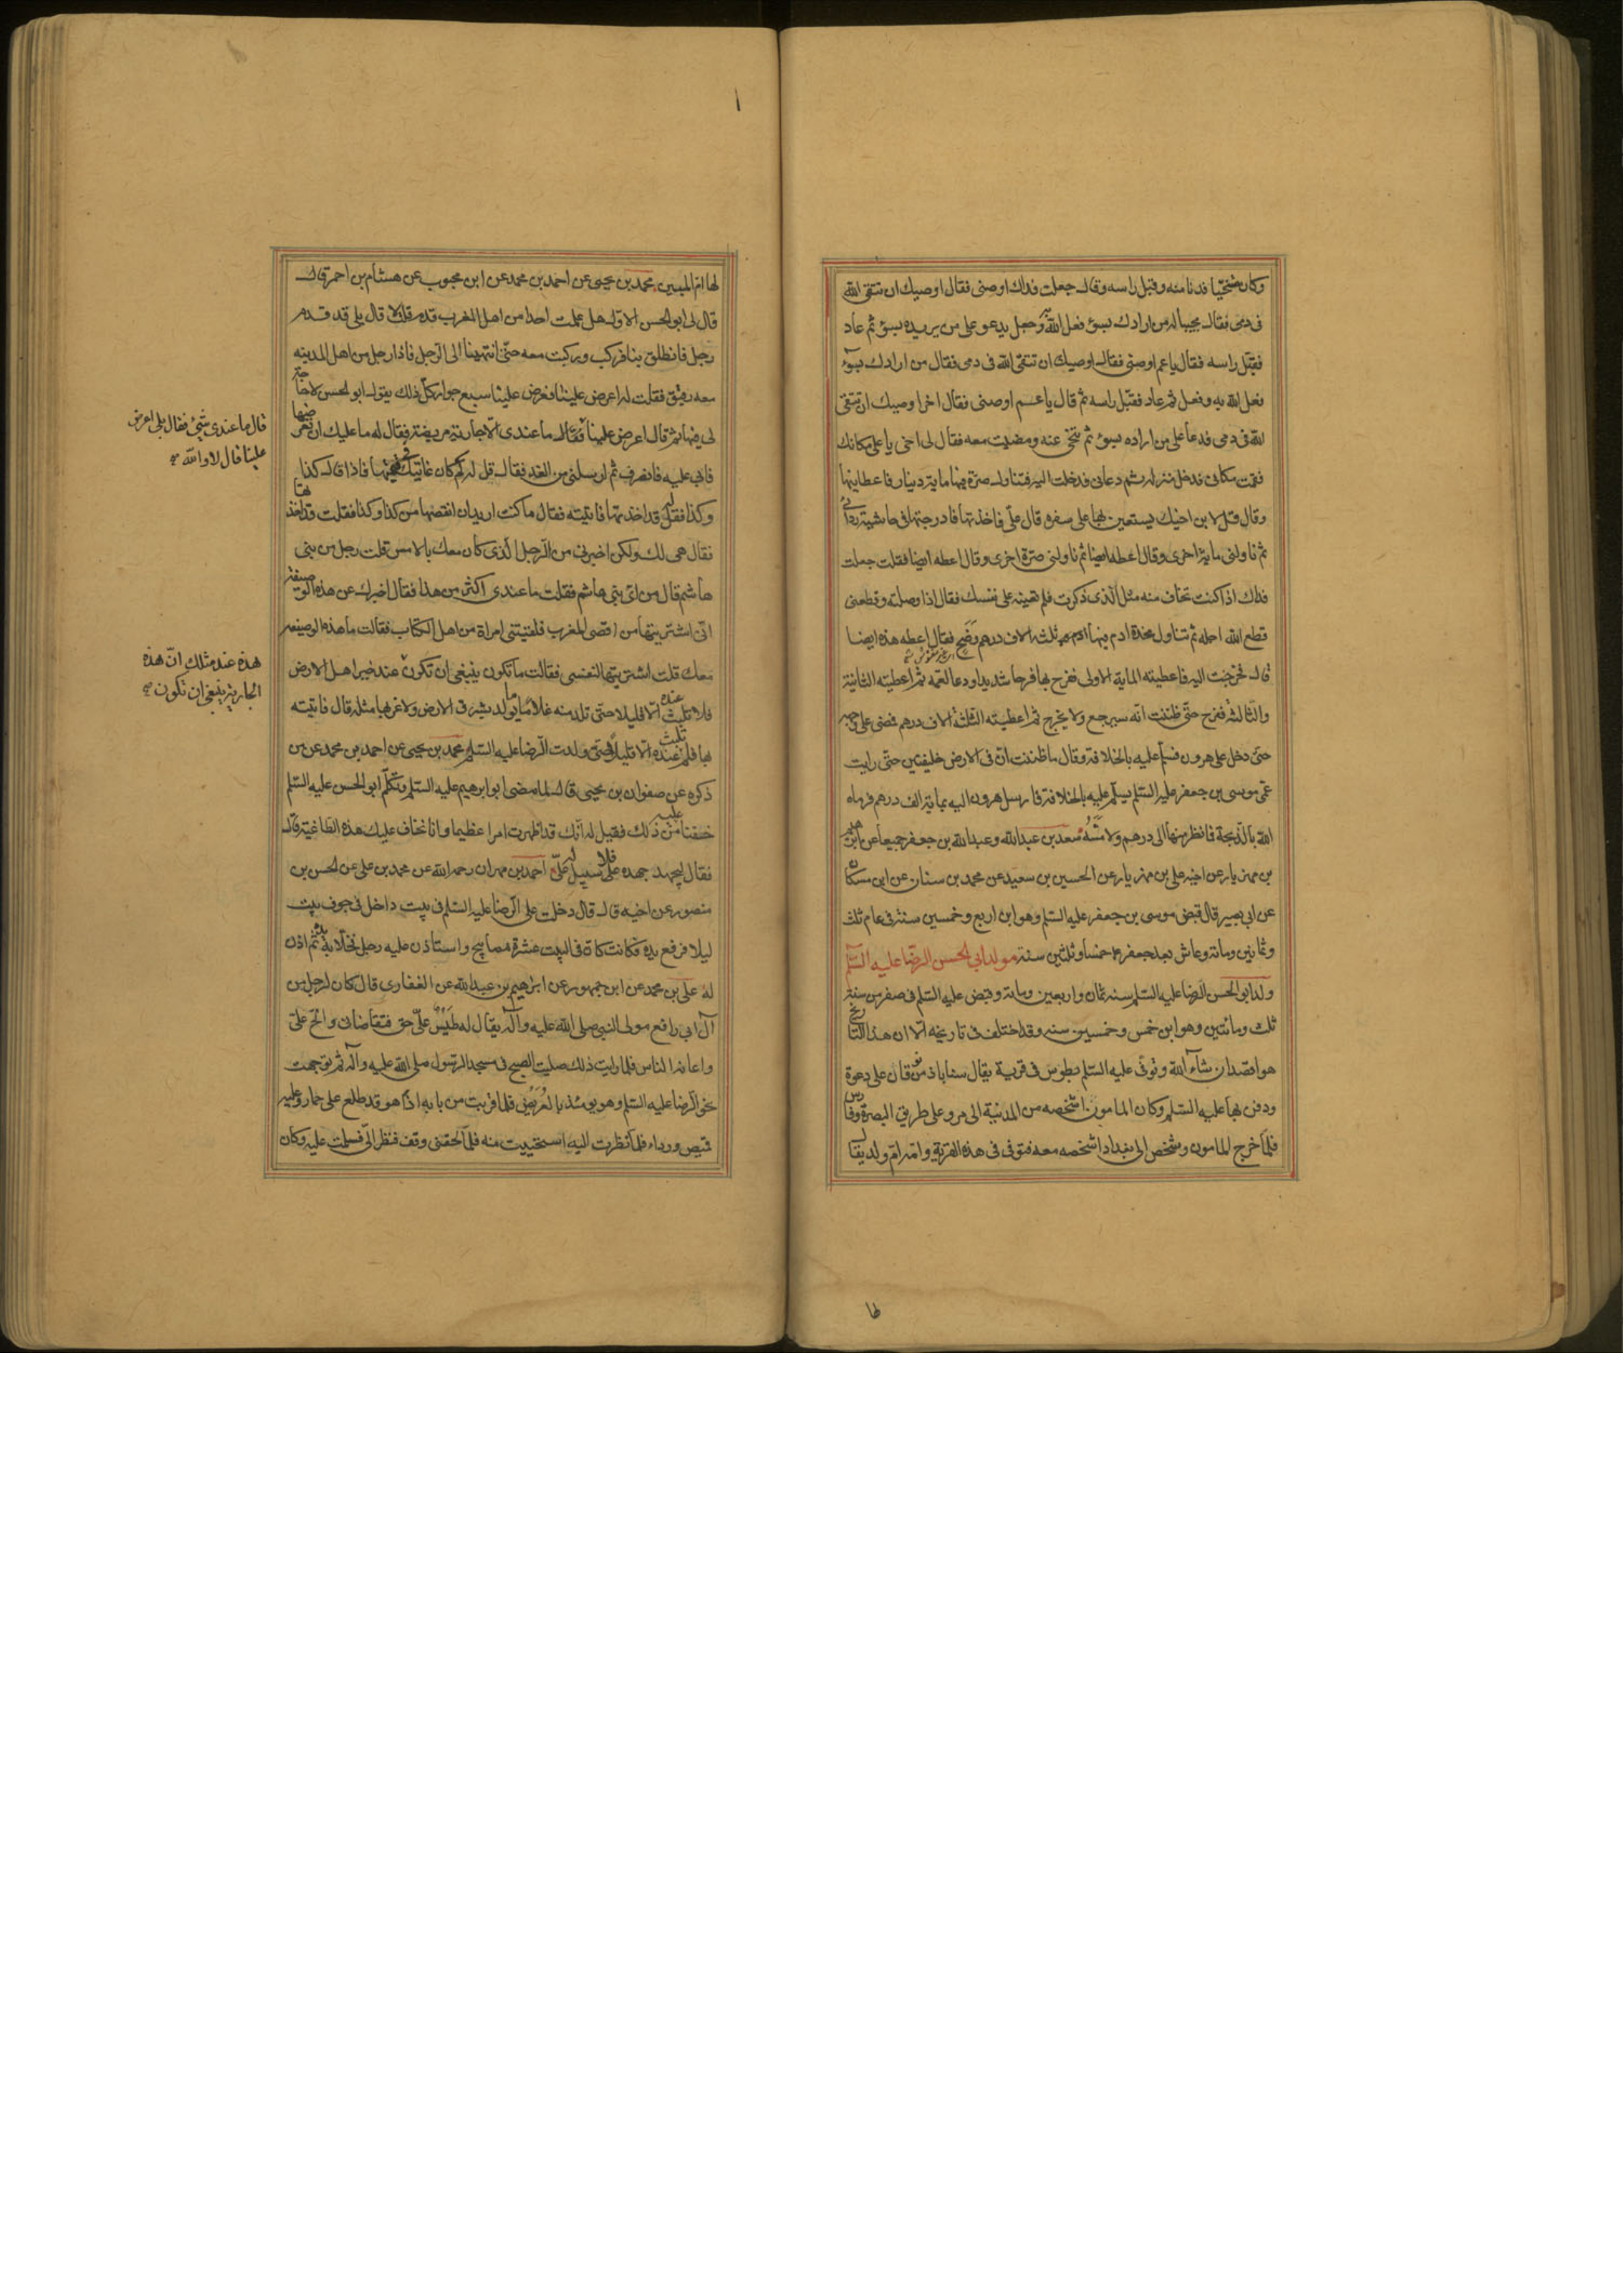 وكان متنحيا فدنا منه وقبل راسه وقال جعلت فداك اوصنى فقال اوصيك ان تتقى الله
فى دمى فقال مجيبا له من ارادك بسوء فعل الله به وجعل يدعو على من يريده بسوء ثم عاد
فقبل راسه فقال يا عم اوصنى فقال اوصيك ان تتقى الله فى دمى فقال من ارادك بسوء
فعل الله به وفعل ثم عاد فقبل راسه ثم قال يا عم اوصنى فقال اخرا وصيك ان تتقى
الله فى دمى فدعا على من اراده بسوء ثم تنحى عنه ومضيت معه فقال لى اخى يا على مكانك
فقمت مكانى فدخل منزله ثم دعانى فدخلت اليه فتناول صرة فيها ماية دينار فاعطانيها
وقال قل لابن اخيك يستعين بها على سفره قال على فاخذتها فادرجتها فى حاشية ردائى
ثم ناولنى ماية اخرى وقال اعطه ايضا ثم ناولنى صرة اخرى وقال اعطه ايضا فقلت جعلت
فداك اذا كنت تخاف منه مثل الذى ذكرت فلم تعينه على نفسك فقال اذا وصلته وقطعنى
قطع الله اجله ثم تناول مخدة ادم فيها ثلثه الاف درهم وضح فقال اعطه هذه ايضا
قال فخرجت اليه فاعطيته الماية الاولى ففرح بها فرحا شديدا ودعا لعمه ثم اعطيته الثانية
والثالثة ففرح حتى ظننت انه سيرجع ولا يخرج ثم اعطيته الثلثة الاف درهم فمضى على وجهه
حتى دخل على هرون فسلم عليه بالخلافة وقال ما ظننت ان فى الارض خليفتين حتى رايت
عمى موسى بن جعفر عليه السلم يسلم عليه بالخلافة فارسل هرون اليه بماية الف درهم فرماه
الله بالذبحة فما نظر منها الى درهم ولا مسه سعد بن عبد الله وعبد الله بن جعفر جميعا عن ابرهيم
بن مهزيار عن اخيه على بن مهزيار عن الحسين بن سعيد عن محمد بن سنان عن ابن مسكان
عن ابى بصير قال قبض موسى بن جعفر عليه السلم وهو ابن اربع وخمسين سنة فى عام ثلث
وثمانين ومائة وعاش بعد جعفر ع خمسا وثلثين سنة مولد ابى الحسن الرضا عليه السلم
ولد ابو الحسن الرضا عليه السلم سنه ثمان واربعين ومائة وقبض عليه السلم فى صفر من سنة
ثلث ومائتين وهو ابن خمس وخمسين سنه وقد اختلف فى تاريخه الا ان هذا التاريخ
هو اقصد ان شاء الله وتوفى عليه السلم بطوس فى قرية يقال سناباد من نوقان على دعوة
ودفن بها عليه السلم وكان المامون اشخصه من المدينة الى مرو على طريق البصرة وفارس
فلما خرج المامون وشخص الى بغداد اشخصه معه فتوفى فى هذه القرية وامه ام ولد يقال
لها ام البنين محمد بن يحيى عن احمد بن محمد عن ابن محبوب عن هشام بن احمر قال
قال لى ابو الحسن الاول هل علمت احدا من اهل المغرب قدم قلت لا قال بلى قد قدم
رجل فانطلق بنا فركب وركبت معه حتى انتهينا الى الرجل فاذا رجل من اهل المدينه
معه رقيق فقلت له اعرض علينا فعرض علينا سبع جوار كل ذلك يقول ابو الحسن لا حاجة
لى فيها ثم قال اعرض علينا فقال ما عندى الا جارية مريضة فقال له ما عليك ان تعرضها
قال ما عندى شئ فقال بلى اعرض
علينا قال لا والله صح
فابى عليه فانصرف ثم ارسلنى من الغد فقال قل له كم كان غايتك فيها فاذا قال كذا
وكذا فقل قد اخذتها فاتيته فقال ما كنت اريد ان انقصها من كذا وكذا فقلت قد اخذتها
فقال هى لك ولكن اخبرنى من الرجل الذى كان معك بالامس قلت رجل من بنى
هاشم قال من اى بنى هاشم فقلت ما عندى اكثر من هذا فقال اخبرك عن هذه الوصيفة
انى اشتريتها من اقصى المغرب فلقيتنى امراة من اهل الكتاب فقالت ما هذه الوصيفة
معك قلت اشتريتها لنفسى فقالت ما تكون ينبغى ان تكون عند خير اهل الارض
هذه عند مثلك ان هذه
الجارية ينبغى ان تكون صح
فلا تلبث عنده الا قليلا حتى تلد منه غلاما ما يولد بشرق الارض ولا غربها مثله قال فاتيته
بها فلم تلبث عنده الا قليلا حتى ولدت الرضا عليه السلم محمد بن يحيى عن احمد بن محمد عن من
ذكره عن صفوان بن يحيى قال لما مضى ابو ابرهيم عليه السلم وتكلم ابو الحسن عليه السلم
خفنا عليه من ذلك فقيل له انك قد اظهرت امرا عظيما وانا نخاف عليك هذه الطاغية قال
فقال ليجهد جهده فلا سبيل له على احمد بن مهران رحمه الله عن محمد بن على عن الحسن بن
منصور عن اخيه قال قال دخلت على الرضا عليه السلم فى بيت داخل فى جوف بيت
ليلا فرفع يده فكانت كان فى البيت عشرة مصابيح واستاذن عليه رجل فخلا يده ثم اذن
له على بن محمد عن ابن جمهور عن ابرهيم بن عبد الله عن الغفارى قال كان لرجل من
آل ابى رافع مولى النبى صلى الله عليه وآله يقال له طيس على حق فتقاضانى والح على
واعانه الناس فلما رايت ذلك صليت الصبح فى مسجد الرسول صلى الله عليه وآله ثم توجهت
نحو الرضا عليه السلم وهو يومئذ بالعريض فلما قربت من بابه اذا هو قد طلع على حمار وعليه
قميص ورداء فلما نظرت اليه استحييت منه فلما لحقنى وقف فنظر الى فسلمت عليه وكان